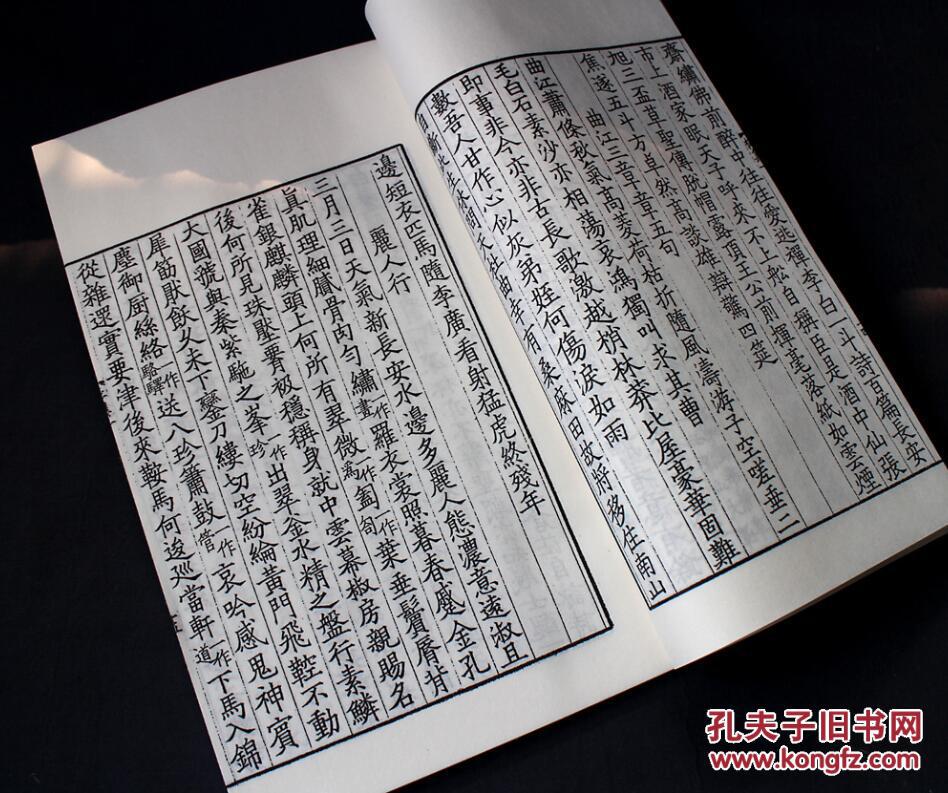 齋繡佛前醉中往往愛逃禪李白一斗詩百篇長安
市上酒家眠天子呼來不上船自稱臣是酒中仙張
旭三盃草聖傳脫帽露頂王公前揮毫落紙如雲煙
焦遂五斗方卓然高談雄辯驚四筵
曲江三章章五句
曲江蕭條秋氣高菱荷枯折隨風濤游子空嗟垂二
毛白石素沙亦相蕩哀鴻獨叫求其曹
即事非今亦非古長歌激越梢林莽比屋豪華固難
數吾人甘作心似灰弟姪何傷淚如雨
有桑麻田故將移住南山
邊短衣匹馬隨李廣看射猛虎終殘年
麗人行
三月三日天氣新長安水邊多麗人態濃意遠淑且
眞肌理細膩骨肉勻繡一作畫羅衣裳照暮春蹙金孔
雀銀麒麟頭上何所有翠微一作爲㔩一作匎葉垂鬢脣背
後何所見珠壓腰衱穩稱身就中雲幕椒房親賜名
大國虢與秦紫馳之峯一作珍出翠釜水精之盤行素鱗
犀筯猒飫久未下鑾刀縷切空紛綸黃門飛鞚不動
塵御厨絲絡一作駱驛送八珍簫鼓一作管哀吟感鬼神賓
從雜遝實要津後來鞍馬何逡巡當軒一作道下馬入錦
孔夫子旧书网
www.kongfz.com